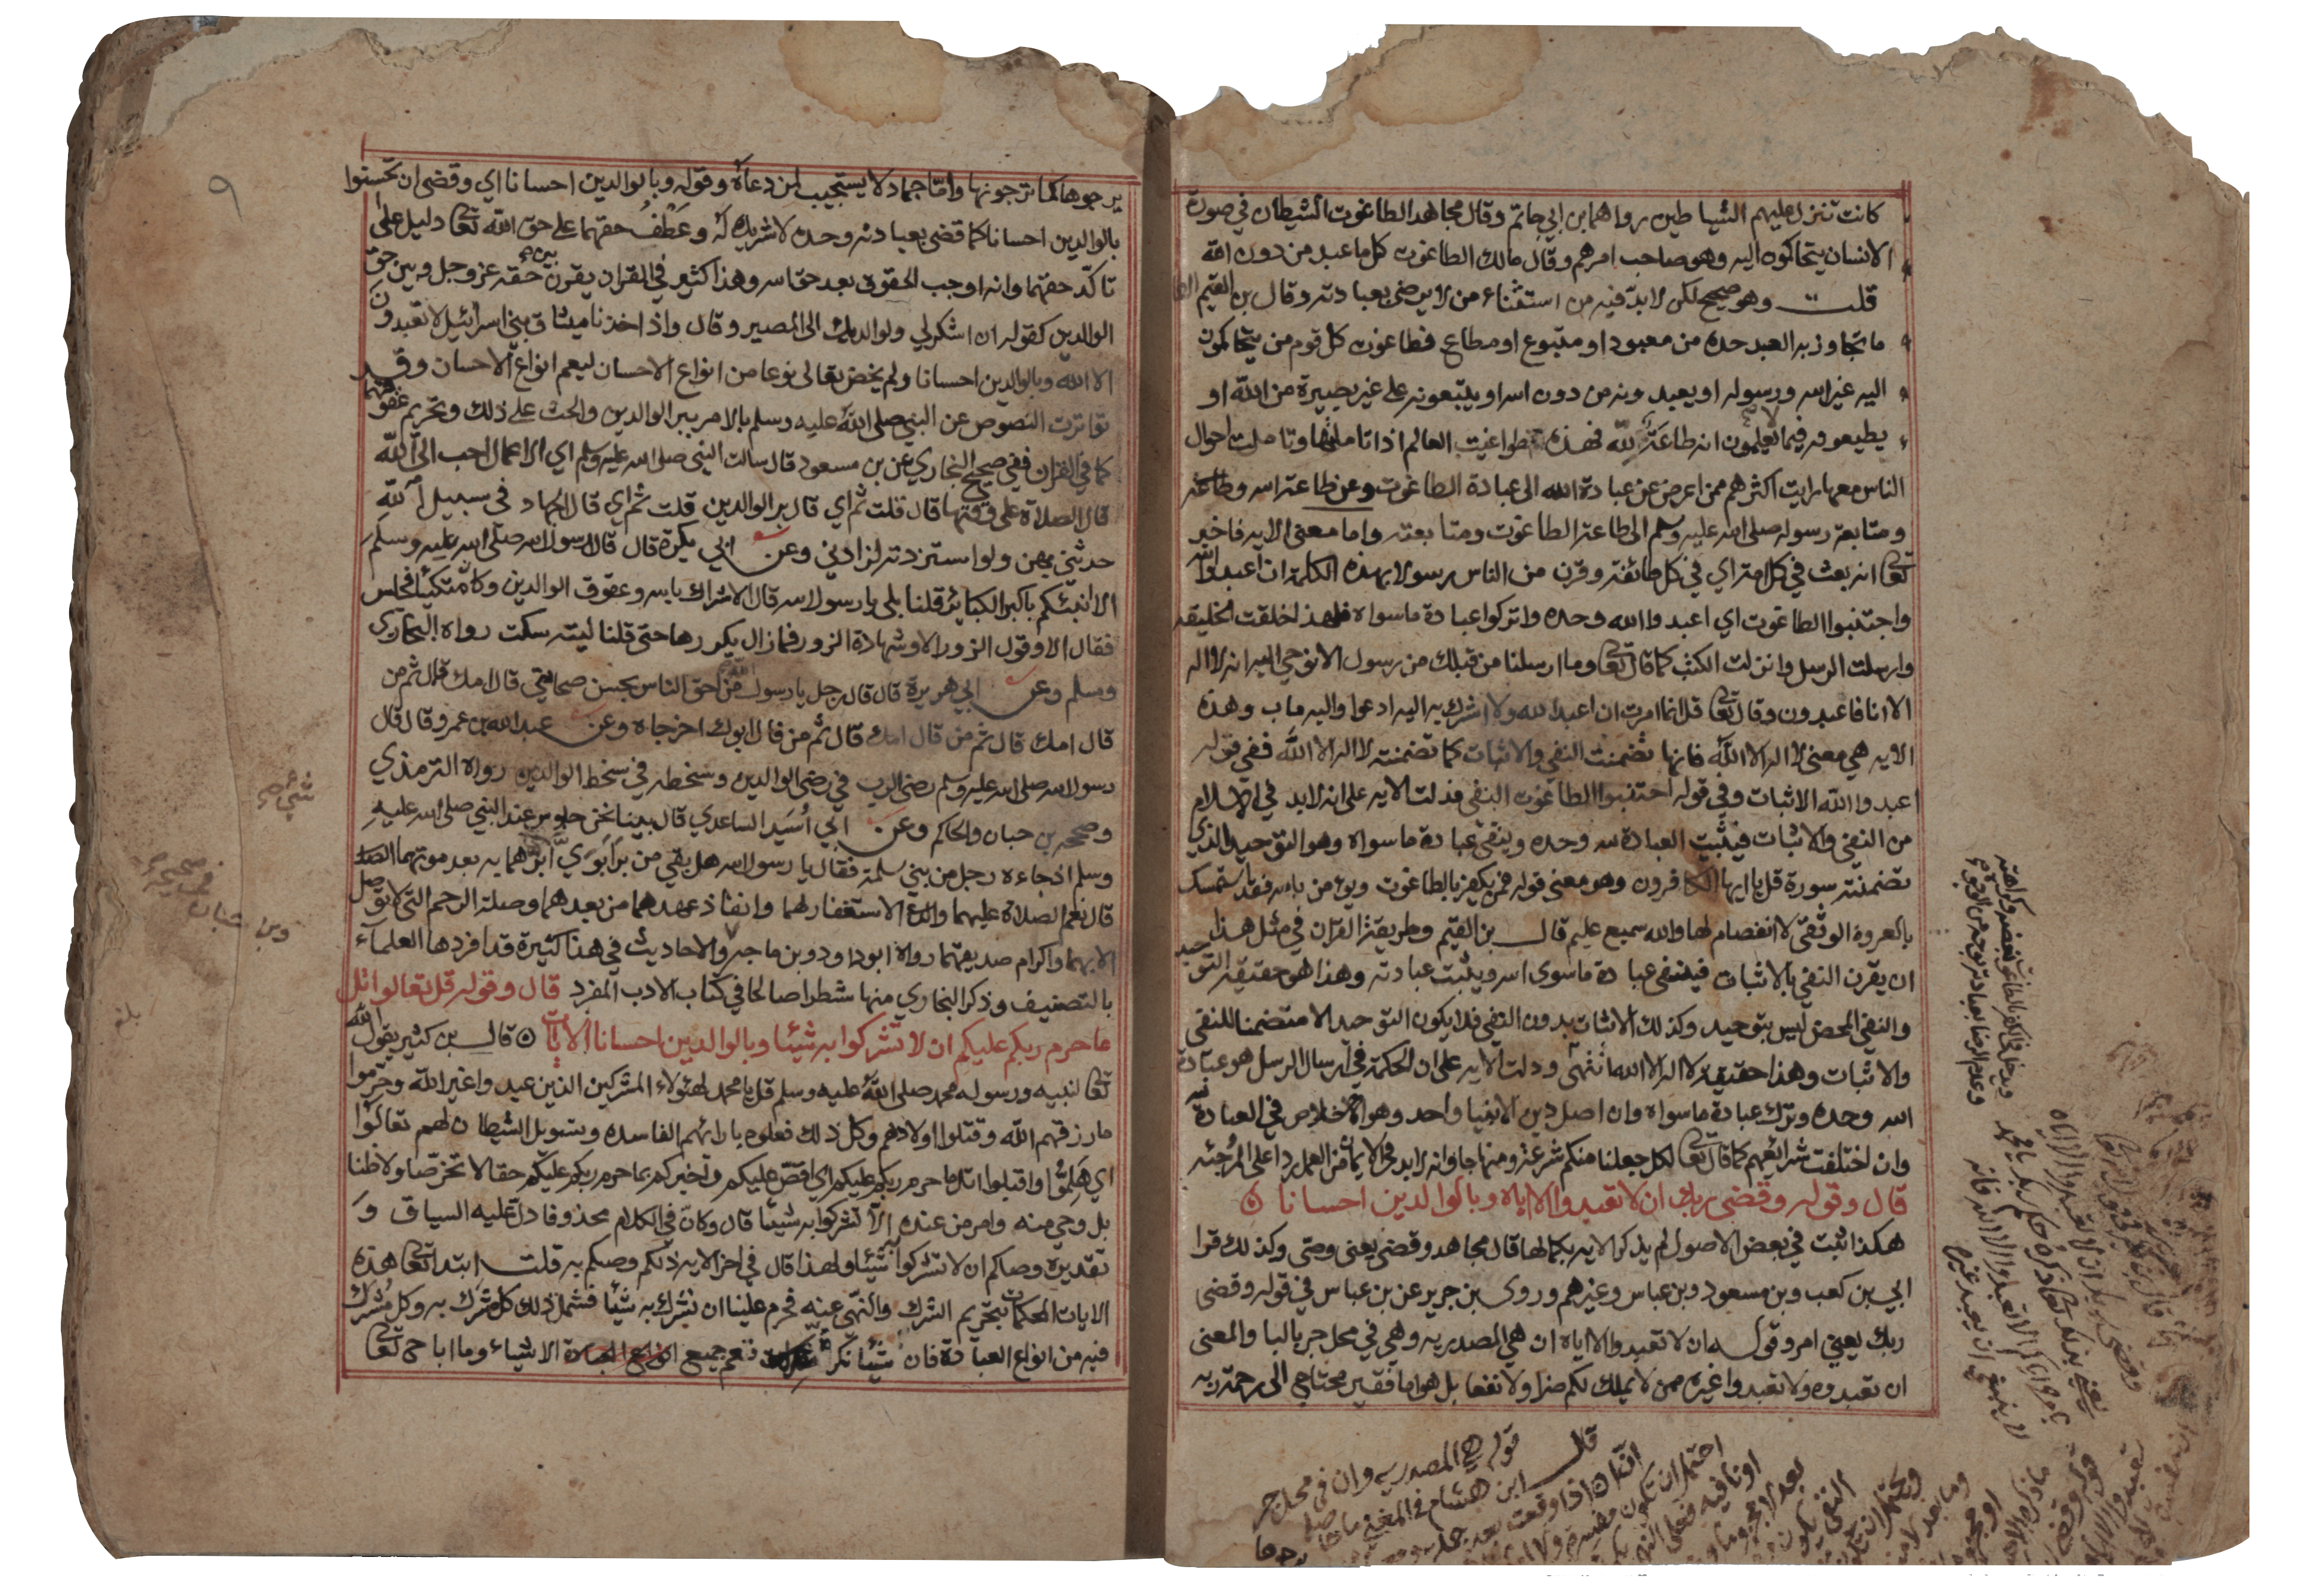 كانت تنزل عليهم الشياطين رواهما بن ابي حاتم وقال مجاهد الطاغوت الشيطان في صورة
الانسان يتحاكمون اليه وهو صاحب امرهم وقال مالك الطاغوت كل ما عبد من دون الله
قلت وهو صحيح لكن لا بدّ فيه من استثناء من لا يرضى بعبادته وقال بن القيم
ما تجاوز به العبد حده من معبود او متبوع او مطاع فطاغوت كل قوم من يتحاكمون
اليه غير الله ورسوله او يعبدونه من دون الله او يتبعونه على غير بصيرة من الله او
يطيعونه فيما لا يعلمون انه طاعة لله فهذه طواغيت العالم اذا تاملتها وتاملت احوال
الناس معها رايت اكثرهم ممن اعرض عن عبادة الله الى عبادة الطاغوت وعن طاعة الله وطاعة
ومتابعة رسوله صلى الله عليه وسلم الى طاعة الطاغوت ومتابعته واما معنى الايه فاخبر
تعا انه بعث في كل امة اي في كل طائفة وقرن من الناس رسولا بهذه الكلمة ان اعبدوا الله
واجتنبوا الطاغوت اي اعبدوا الله وحده واتركوا عبادة ما سواه فلهذا خلقت الخليقه
وارسلت الرسل وانزلت الكتب كما قال تعا وما ارسلنا من قبلك من رسول الا نوحي اليه انه لا اله
الا انا فاعبدون وقال تعا قل انما امرت ان اعبد الله ولا اشرك به اليه ادعوا واليه ماب وهذه
الايه هي معنى لا اله الا الله فانها تضمنت النفي والاثبات كما تضمنته لا اله الا الله ففي قوله
اعبدوا الله الاثبات وفي قوله اجتنبوا الطاغوت النفي فدلت الايه على انه لا بد في الاسلام
من النفي والاثبات فيثبت العبادة لله وحده وينفي عبادة ما سواه وهو التوحيد الذي
تضمنته سورة قل يا ايها الكافرون وهو معنى قوله فمن يكفر بالطاغوت ويؤمن بالله فقد استمسك
بالعروة الوثقى لا انفصام لها والله سميع عليم قال بن القيم وطريقة القران في مثل هذا
ان يقرن النفي بالاثبات فينفي عبادة ما سوى الله ويثبت عبادته وهذا هو حقيقة التوحيد
والنفي المحض ليس بتوحيد وكذلك الاثبات بدون النفي فلا يكون التوحيد الا متضمنا للنفي
والاثبات وهذا حقيقة لا اله الا الله انتهى ودلت الايه على ان الحكمة في ارسال الرسل هو عبادة
الله وحده وترك عبادة ما سواه وان اصل دين الانبيا واحد وهو الاخلاص في العبادة
وان اختلفت شرائعهم كما قال تعا لكل جعلنا منكم شرعة ومنهاجا وانه لا بد في الايمان من العمل ردا على المرجئه
قال وقوله وقضى ربك ان لا تعبدوا الا اياه وبالوالدين احسانا
هكذا ثبت في بعض الاصول لم يذكر الايه بكمالها قال مجاهد وقضى يعني وصّى وكذلك قرا
ابي بن كعب وبن مسعود وبن عباس وغيرهم وروى بن جرير عن بن عباس في قوله وقضى
ربك يعني امر وقوله ان لا تعبدوا الا اياه ان هي المصدريه وهي في محل جر بالبا والمعنى
ان تعبدوه ولا تعبدوا غيره ممن لا يملك لكم ضرا ولا نفعا بل هو اما فقير محتاج الى رحمة ربه
قوله هي المصدريه وان في محل جر
قال ابن هشام في المغني ما حاصله
٩
يرجوها كما ترجونها واما جماد لا يستجيب لمن دعاه وقوله وبالوالدين احسانا اي وقضى ان تحسنوا
بالوالدين احسانا كما قضى بعبادته وحده لا شريك له وعطف حقهما على حق الله تعا دليل على
تاكّد حقهما وانه اوجب الحقوق بعد حق الله وهذا كثير في القران يقرن بين حقه عز وجل وبين حق
الوالدين كقوله ان اشكر لي ولوالديك الى المصير وقال واذ اخذنا ميثاق بني اسرائيل لا تعبدون
الا الله وبالوالدين احسانا ولم يخص تعالى نوعا من انواع الاحسان ليعم انواع الاحسان وقد
تواترت النصوص عن النبي صلى الله عليه وسلم بالامر ببر الوالدين والحث على ذلك وتحريم عقوقهما
كما في القران ففي صحيح البخاري عن بن مسعود قال سالت النبي صلى الله عليه وسلم اي الاعمال احب الى الله
قال الصلاة على وقتها قال قلت ثم اي قال بر الوالدين قلت ثم اي قال الجهاد في سبيل الله
حدثني بهن ولو استزدته لزادني وعن ابي بكرة قال قال رسول الله صلى الله عليه وسلم
الا انبئكم باكبر الكبائر قلنا بلى يا رسول الله قال الاشراك بالله وعقوق الوالدين وكان متكئا فجلس
فقال الا وقول الزور الا وشهادة الزور فما زال يكررها حتى قلنا ليته سكت رواه البخاري
وسلم وعن ابي هريرة قال قال رجل يا رسول الله من احق الناس بحسن صحابتي قال امك قال ثم من
قال امك قال ثم من قال امك قال ثم من قال ابوك اخرجاه وعن عبد الله بن عمر وقال قال
رسول الله صلى الله عليه وسلم رضى الرب في رضى الوالدين وسخطه في سخط الوالدين رواه الترمذي
وصححه بن حبان والحاكم وعن ابي أسيد الساعدي قال بينا نحن جلوس عند النبي صلى الله عليه
وسلم اذ جاءه رجل من بني سلمة فقال يا رسول الله هل بقي من بر ابوي شي ابرهما به بعد موتهما
قال نعم الصلاة عليهما والاستغفار لهما وانفاذ عهدهما من بعدهما وصلة الرحم التي لا توصل
الا بهما واكرام صديقهما رواه ابو داود وبن ماجه والاحاديث في هذا كثيرة قد افردها العلماء
بالتصنيف وذكر البخاري منها شطرا صالحا في كتاب الادب المفرد قال وقوله قل تعالوا اتل
ما حرم ربكم عليكم ان لا تشركوا به شيئا وبالوالدين احسانا الايات قال بن كثير يقول الله
تعا لنبيه ورسوله محمد صلى الله عليه وسلم قل يا محمد لهئولاء المشركين الذين عبدوا غير الله وحرموا
ما رزقهم الله وقتلوا اولادهم وكل ذلك فعلوه بارائهم الفاسده وتسويل الشيطان لهم تعالوا
اي هلموا واقبلوا اتل ما حرم ربكم عليكم اي اقصّ عليكم واخبركم بما حرم ربكم عليكم حقا لا تخرصا ولا ظنا
بل وحي منه وامر من عنده الا تشركوا به شيئا قال وكان في الكلام محذوفا دل عليه السياق و
تقديره وصاكم ان لا تشركوا به شيئا ولهذا قال في اخر الايه ذلكم وصاكم به قلت ابتدا تعا هذه
الايات المحكمات بتحريم الشرك والنهي عنه فحرم علينا ان نشرك به شيئا فشمل ذلك كل مشرك به وكل مشرك
فيه من انواع العبادة فان شيئا نكرة فتعم جميع الاشياء وما اباح تعا